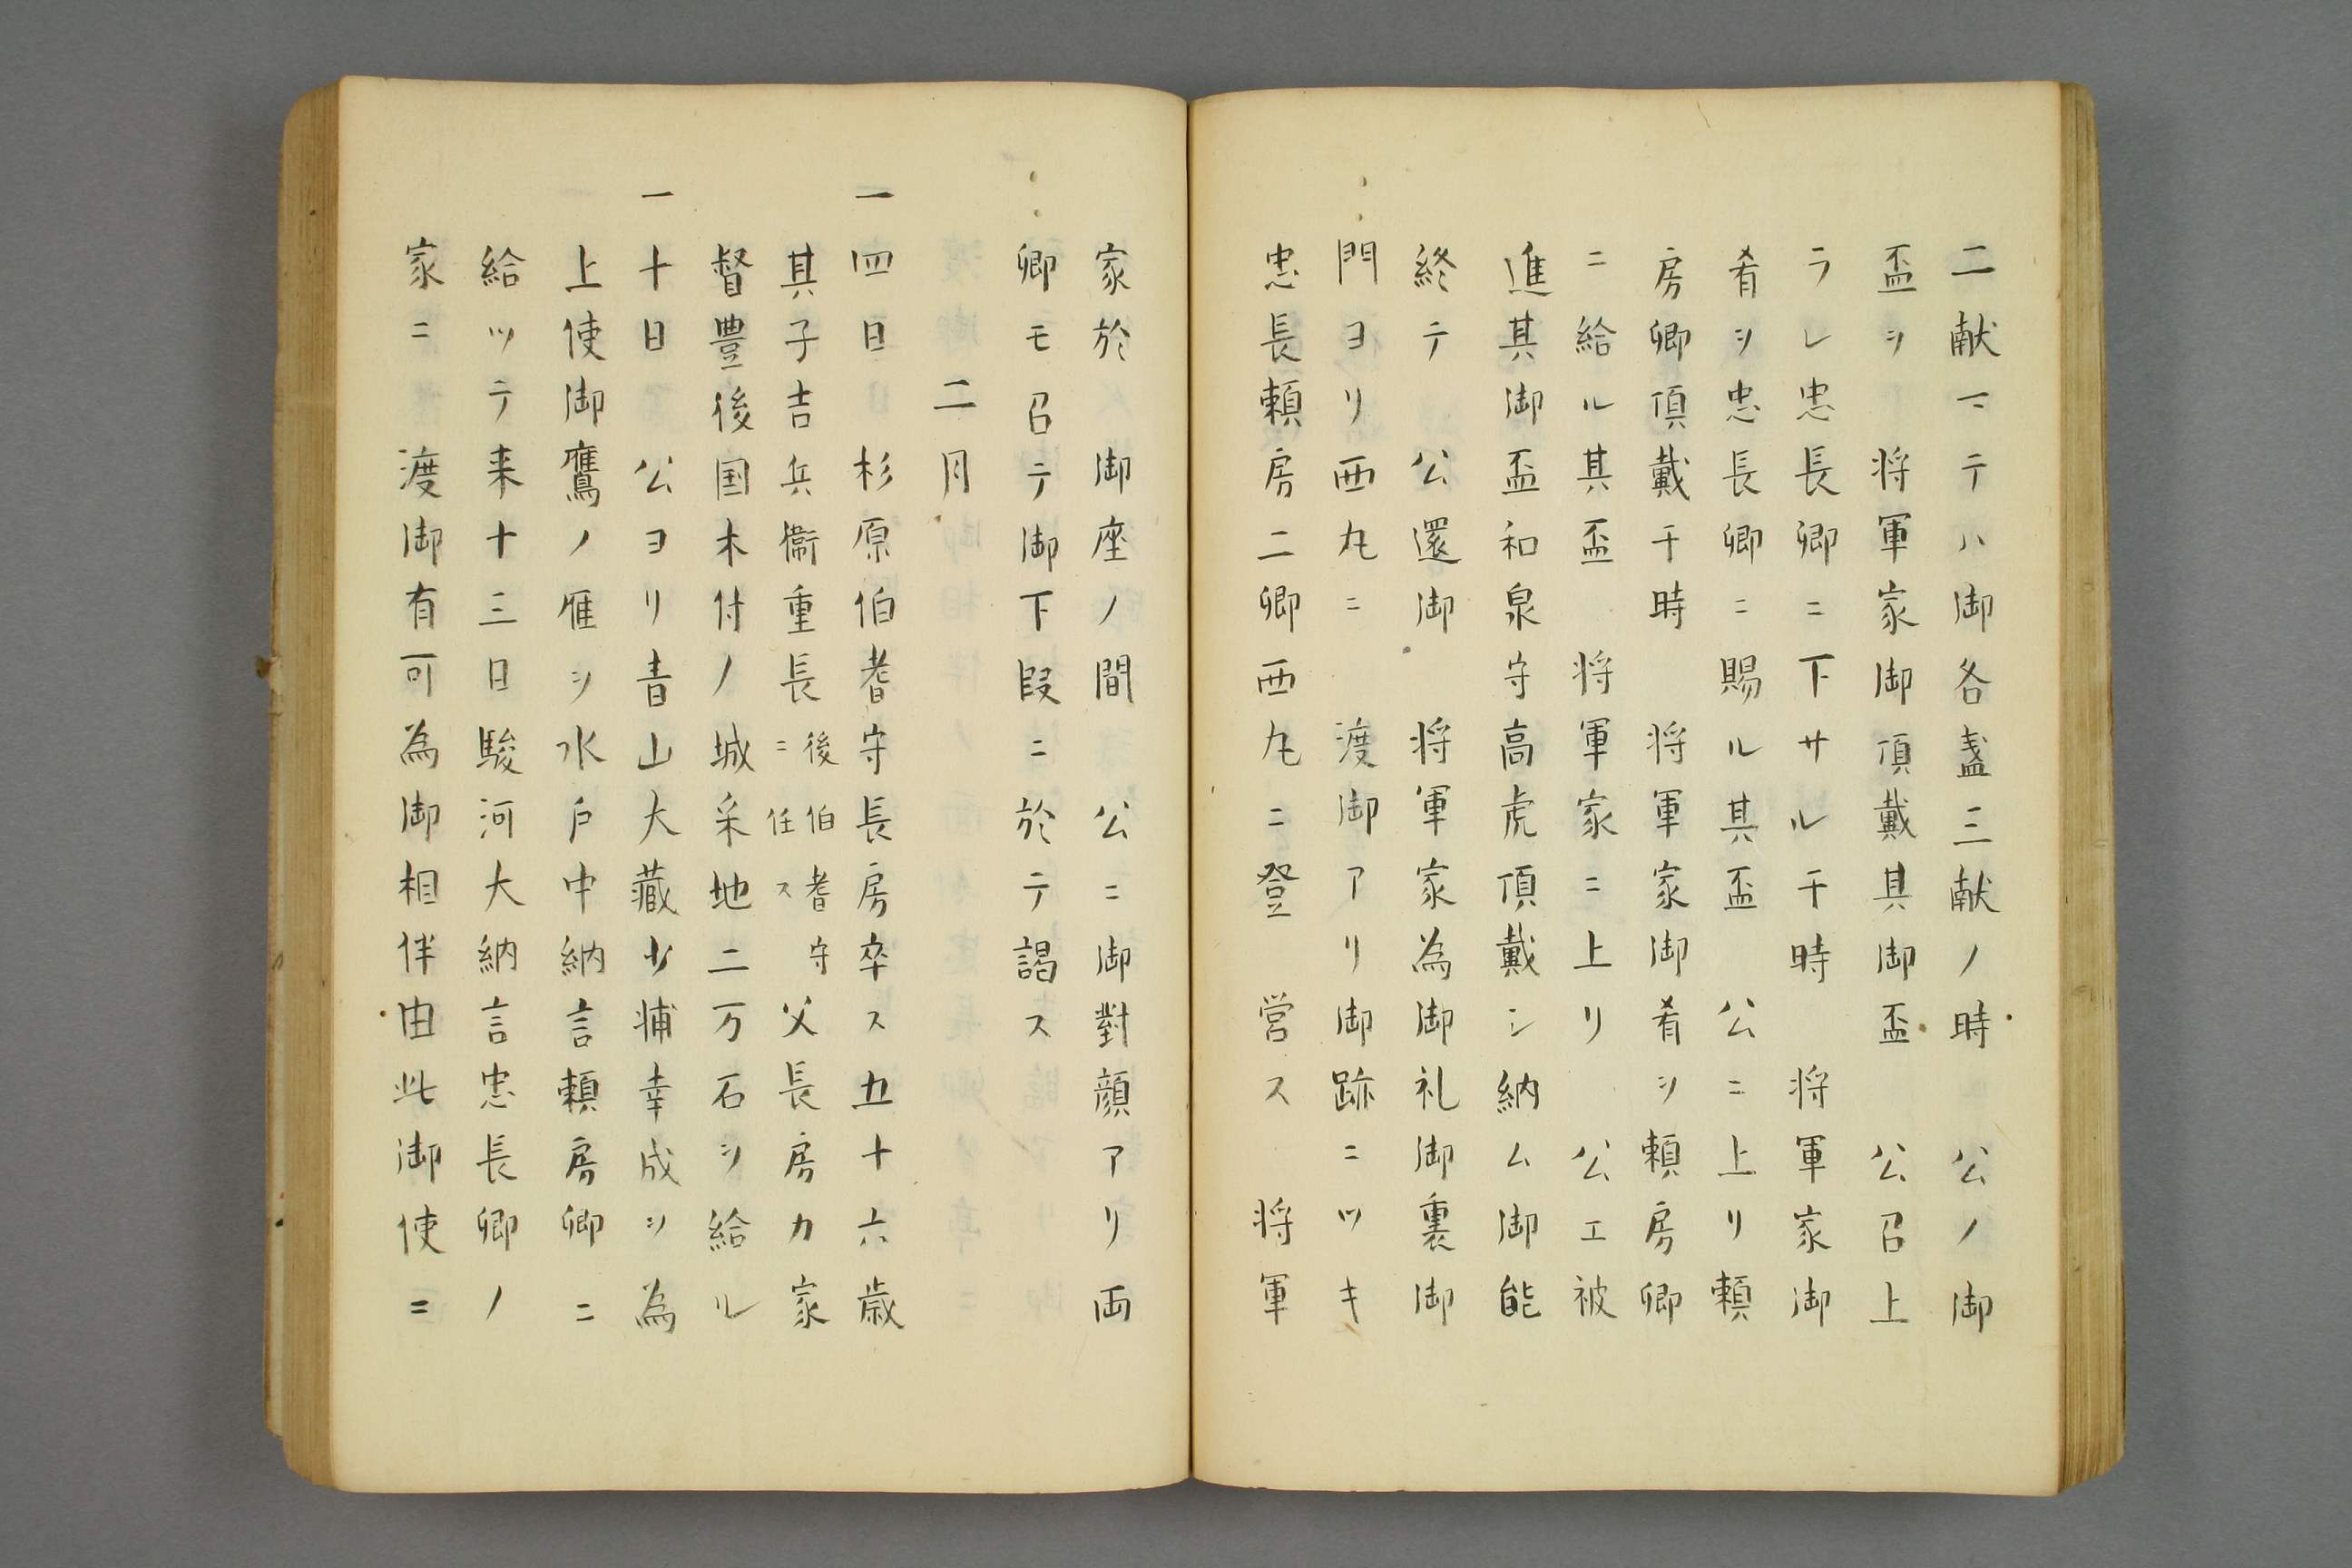 二献マテハ御各盞三献ノ時　公ノ御
盃ヲ　将軍家御頂戴其御盃　公召上
ラレ忠長卿ニ下サル于時　将軍家御
肴ヲ忠長卿ニ賜ル其盃　公ニ上リ頼
房卿頂戴于時　将軍家御肴ヲ頼房卿
ニ給ル其盃　将軍家ニ上リ　公エ被
進其御盃和泉守高虎頂戴シ納ム御能
終テ　公還御　将軍家為御礼御裏御
門ヨリ西丸ニ　渡御アリ御跡ニツキ
忠長頼房二卿西丸ニ登　営ス　将軍
家於　御座ノ間　公ニ御對顔アリ両
卿モ召テ御下段ニ於テ謁ス
二月
一四日杉原伯耆守長房卒ス五十六歳
其子吉兵衞重長後伯耆守ニ任ス父長房カ家
督豊後国木付ノ城采地二万石ヲ給ル
一十日　公ヨリ青山大藏少輔幸成ヲ為
上使御鷹ノ雁ヲ水戸中納言頼房卿ニ
給ツテ来十三日駿河大納言忠長卿ノ
家ニ　渡御有可為御相伴由此御使ニ